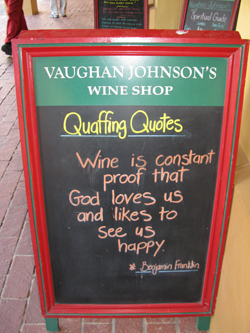 VAUGHAN JOHNSON'S
WINE SHOP
Quaffing Quotes
Wine is constant
proof that
God loves us
and likes to
see us
happy.
* Benjamin Franklin
Spiritual Guide